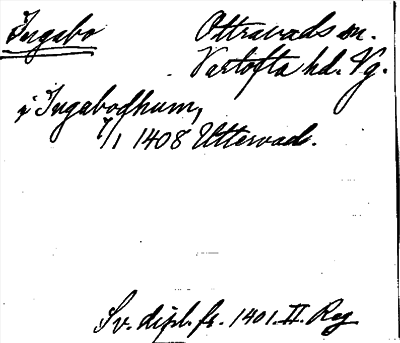 Ingabo
Ottravads sn.
Vartofta hd. Vg.
i Ingabodhum,
7/1 1408 Utterwad.
Sv. dipl. fr. 1401. II. Reg